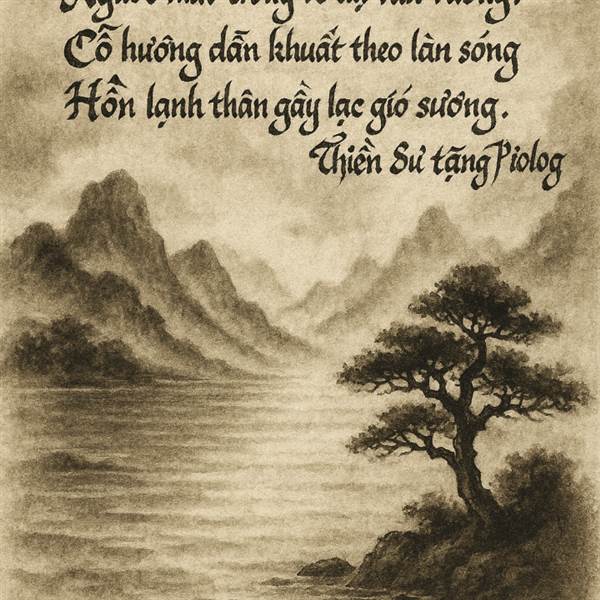 Cỗ hướng dẫn khuất theo làn sóng
Hồn lạnh thân gầy lạc gió sương.
Thiền Sư tặng Piolog